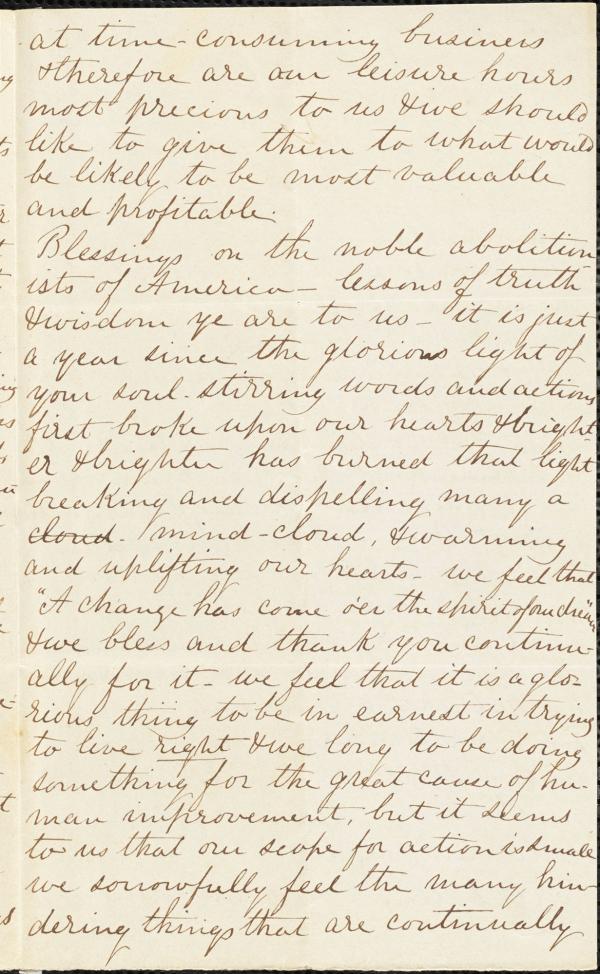 at time-consuming business
& therefore are our leisure hours
most precious to us & we should
like to give them to what would
be likely to be most valuable
and profitable.
Blessings on the noble abolition
ists of America - lessons of truth
& wisdom ye are to us - it is just
a year since the glorious light of
your soul-stirring words and actions
first broke upon our hearts & bright-
er & brighter has burned that light
breaking and dispelling many a
cloud - mind-cloud, & warming
and uplifting our hearts - we feel that
"A change has come o'er the spirit of our dream"
& we bless and thank you continu-
ally for it - we feel that it is a glo-
rious thing to be in earnest in trying
to live right & we long to be doing
something for the great cause of hu-
man improvement, but it seems
to us that our scope for action is small
we sorrowfully feel the many hin-
dering things that are continually